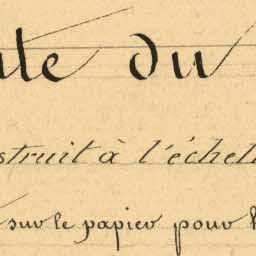 te du
struit à l'échel
sur le papier pour